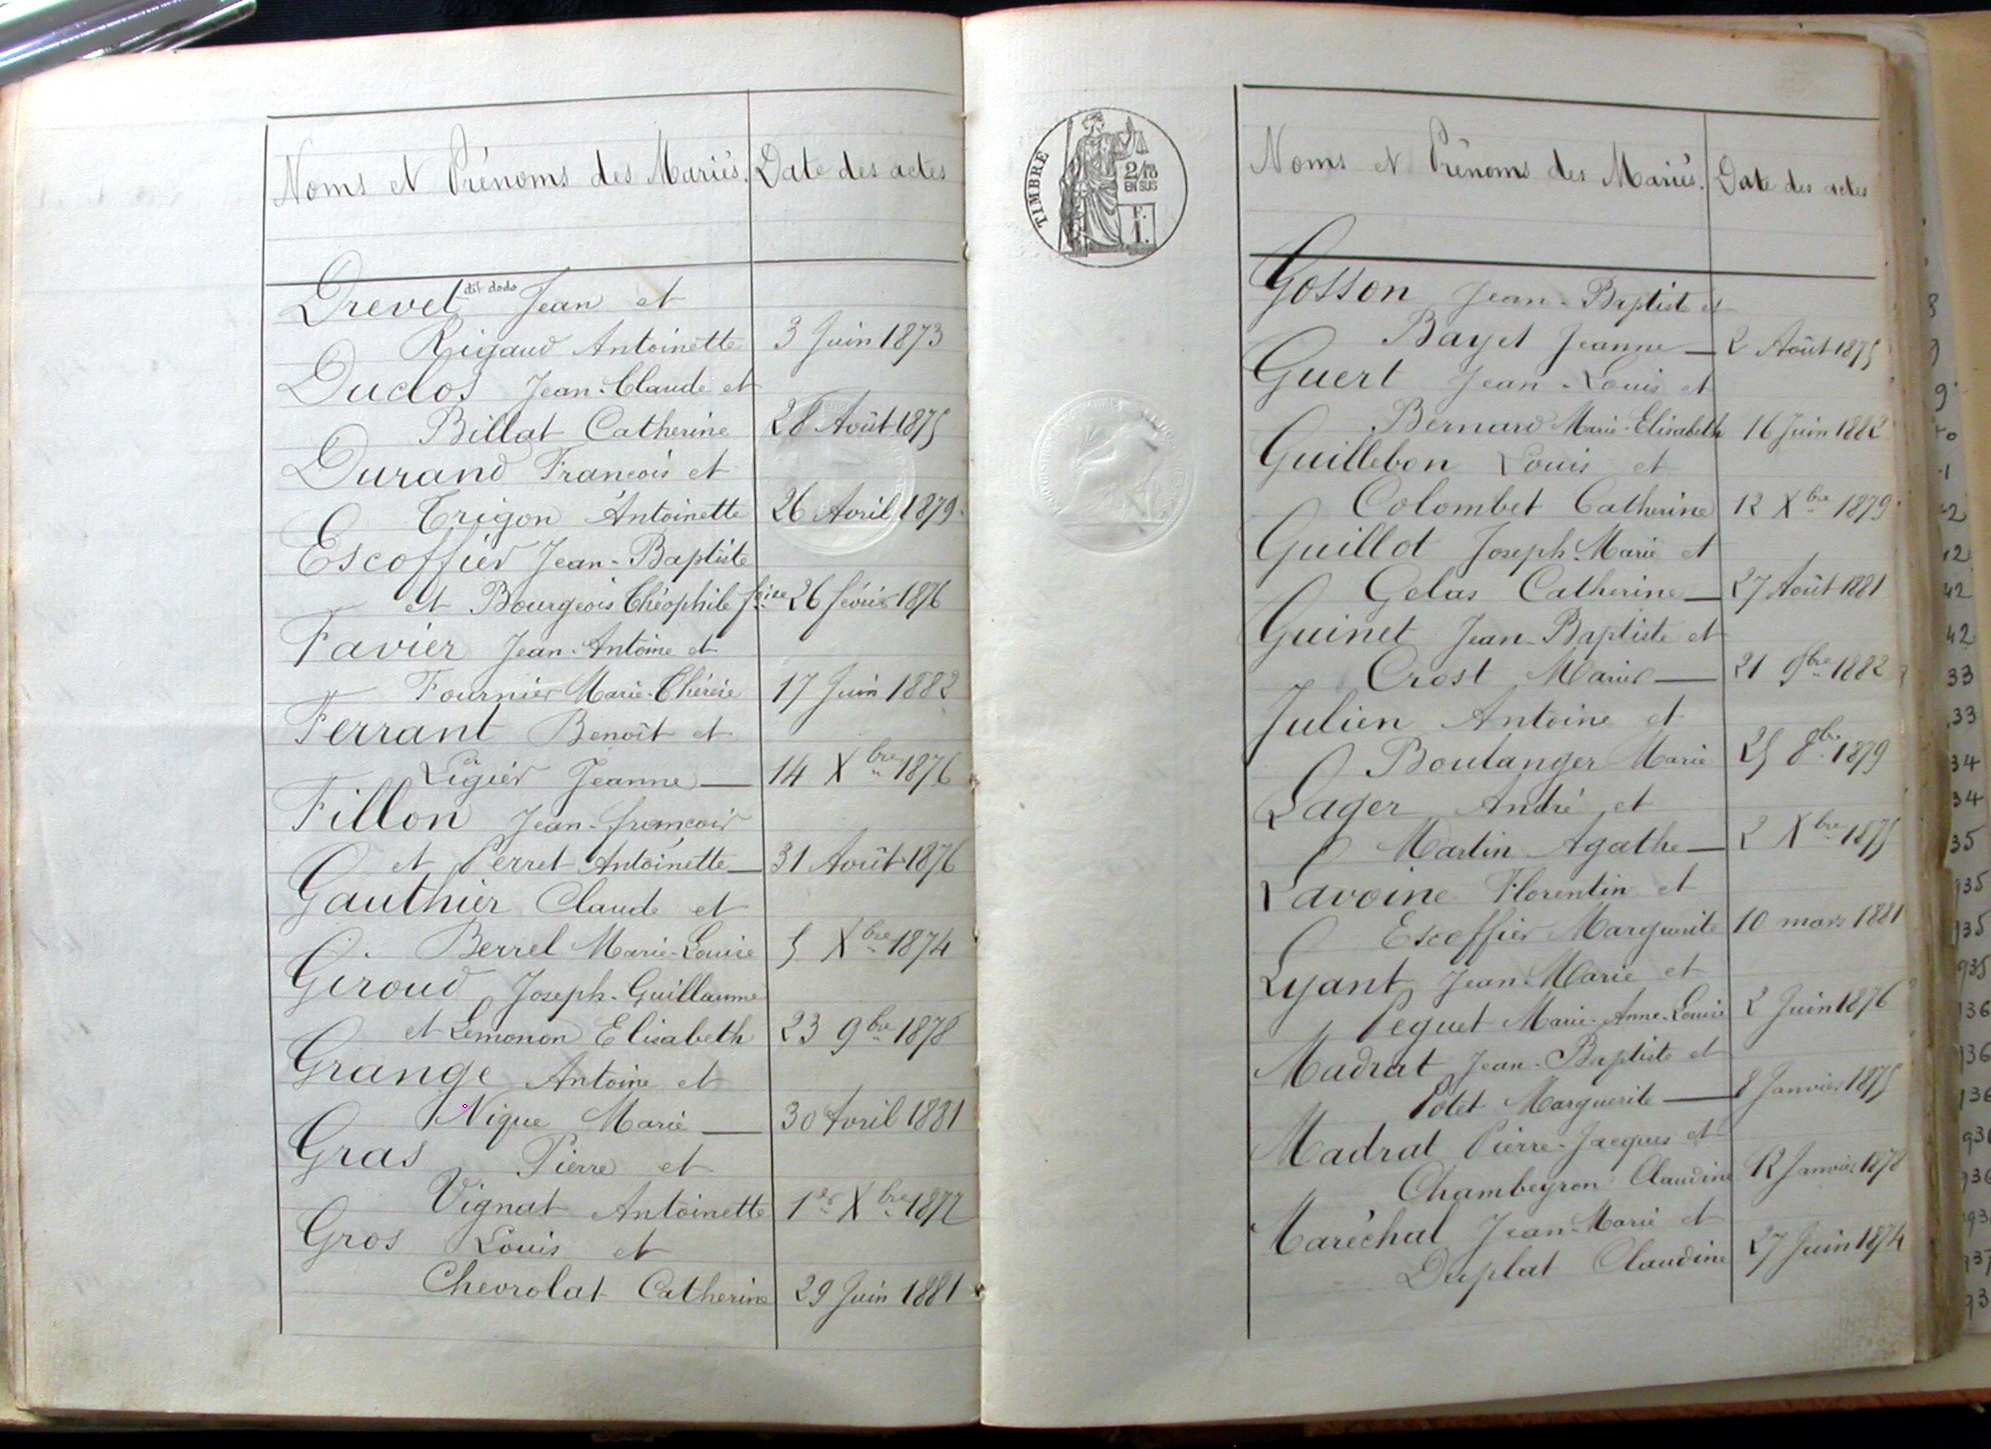 Noms et Prénoms des Mariés. Date des actes
Drevet dit dodo Jean et
Rigaud Antoinette 3 Juin 1873
Duclos Jean-Claude et
Billat Catherine 28 Août 1875
Durand François et
Trigon Antoinette 26 Avril 1879
Escoffier Jean-Baptiste
et Bourgeois Théophile fsine 26 février 1876
Favier Jean-Antoine et
Fournier Marie-Thérèse 17 Juin 1882
Ferrant Benoît et
Ligier Jeanne — 14 Xbre 1876
Fillon Jean-françois
et Perret Antoinette — 31 Août 1876
Gauthier Claude et
Berrel Marie-Louise 5 Xbre 1874
Giroud Joseph-Guillaume
et Lemonon Elisabeth 23 9bre 1878
Grange Antoine et
Nique Marie — 30 Avril 1881
Gras Pierre et
Vignat Antoinette 1er Xbre 1877
Gros Louis et
Chevrolat Catherine 29 Juin 1881
TIMBRE
2/10
EN SUS
F.
1.
Noms et Prénoms des Mariés. Date des actes
Gosson Jean-Baptiste et
Bayet Jeanne — 2 Août 1875
Guert Jean-Louis et
Bernard Marie-Elisabeth 16 Juin 1882
Guillebon Louis et
Colombet Catherine 12 Xbre 1879
Guillot Joseph-Marie et
Gelas Catherine — 27 Août 1881
Guinet Jean-Baptiste et
Crost Marie — 21 9bre 1882
Julien Antoine et
Boulanger Marie 25 8bre 1879
Lager André et
Martin Agathe — 2 Xbre 1875
Lavoine Florentin et
Escoffier Marguerite 10 mars 1881
Lyant Jean-Marie et
Peguet Marie-Anne-Louise 2 Juin 1876
Madrat Jean-Baptiste et
Potet Marguerite — 8 Janvier 1875
Madrat Pierre-Jacques et
Chambeyron Claudine 12 Janvier 1878
Maréchal Jean-Marie et
Duplat Claudine 27 Juin 1874